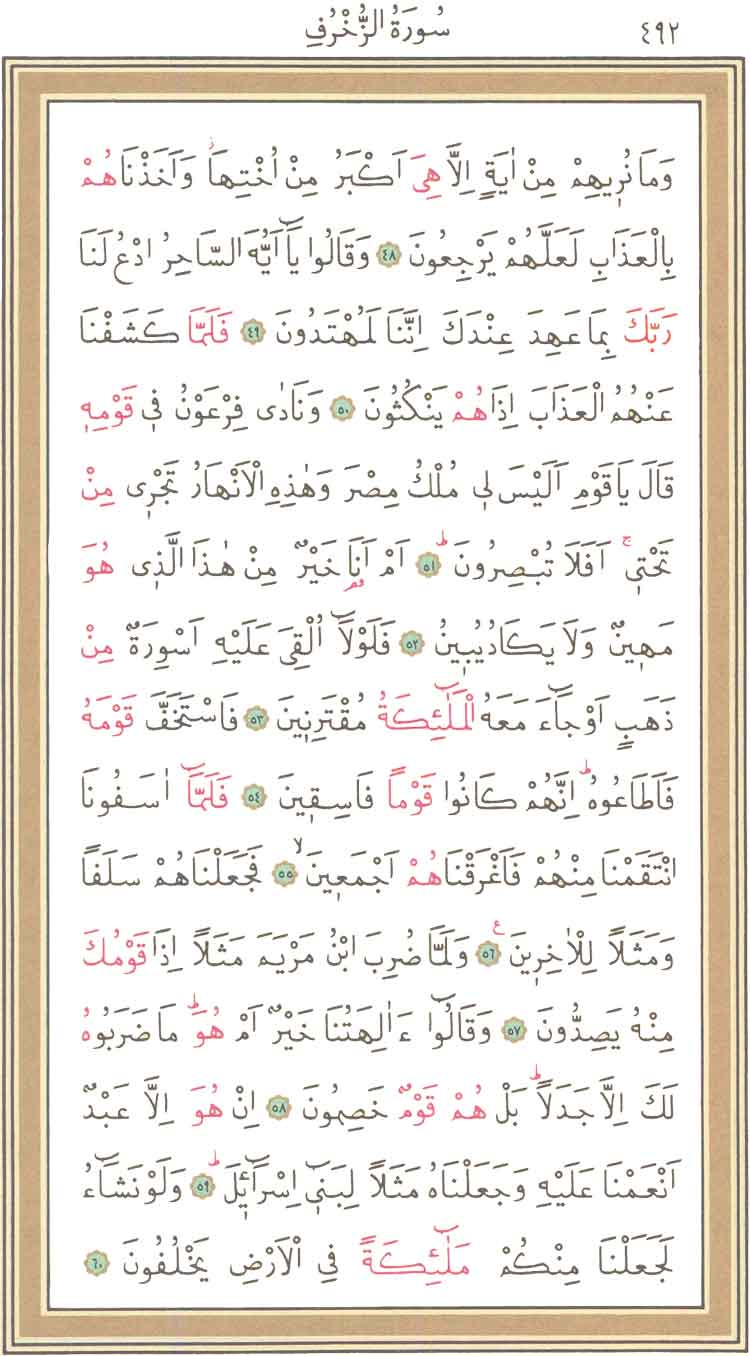 ٤٩٢ سُورَةُ الزُّخْرُفِ
وَمَا نُرٖيهِمْ مِنْ اٰيَةٍ اِلَّا هِيَ اَكْبَرُ مِنْ اُخْتِهَاۘ وَاَخَذْنَاهُمْ
بِالْعَذَابِ لَعَلَّهُمْ يَرْجِعُونَ ﴿٤٨﴾ وَقَالُوا يَٓا اَيُّهَ السَّاحِرُ ادْعُ لَنَا
رَبَّكَ بِمَا عَهِدَ عِنْدَكَ اِنَّنَا لَمُهْتَدُونَ ﴿٤٩﴾ فَلَمَّا كَشَفْنَا
عَنْهُمُ الْعَذَابَ اِذَا هُمْ يَنْكُثُونَ ﴿٥٠﴾ وَنَادٰى فِرْعَوْنُ فٖي قَوْمِهٖ
قَالَ يَا قَوْمِ اَلَيْسَ لٖي مُلْكُ مِصْرَ وَهٰذِهِ الْاَنْهَارُ تَجْرٖي مِنْ
تَحْتٖيۚ اَفَلَا تُبْصِرُونَۜ ﴿٥١﴾ اَمْ اَنَا۬ خَيْرٌ مِنْ هٰذَا الَّذٖي هُوَ
مَهٖينٌ وَلَا يَكَادُ يُبٖينُ ﴿٥٢﴾ فَلَوْلَٓا اُلْقِيَ عَلَيْهِ اَسْوِرَةٌ مِنْ
ذَهَبٍ اَوْ جَٓاءَ مَعَهُ الْمَلٰٓئِكَةُ مُقْتَرِنٖينَ ﴿٥٣﴾ فَاسْتَخَفَّ قَوْمَهُ
فَاَطَاعُوهُۜ اِنَّهُمْ كَانُوا قَوْماً فَاسِقٖينَ ﴿٥٤﴾ فَلَمَّٓا اٰسَفُونَا
انْتَقَمْنَا مِنْهُمْ فَاَغْرَقْنَاهُمْ اَجْمَعٖينَۙ ﴿٥٥﴾ فَجَعَلْنَاهُمْ سَلَفاً
وَمَثَلاً لِلْاٰخِرٖينَ ﴿٥٦﴾ وَلَمَّا ضُرِبَ ابْنُ مَرْيَمَ مَثَلاً اِذَا قَوْمُكَ
مِنْهُ يَصِدُّونَ ﴿٥٧﴾ وَقَالُٓوا ءَاٰلِهَتُنَا خَيْرٌ اَمْ هُوَۜ مَا ضَرَبُوهُ
لَكَ اِلَّا جَدَلاًۜ بَلْ هُمْ قَوْمٌ خَصِمُونَ ﴿٥٨﴾ اِنْ هُوَ اِلَّا عَبْدٌ
اَنْعَمْنَا عَلَيْهِ وَجَعَلْنَاهُ مَثَلاً لِبَنٖٓي اِسْرَٓائٖلَۜ ﴿٥٩﴾ وَلَوْ نَشَٓاءُ
لَجَعَلْنَا مِنْكُمْ مَلٰٓئِكَةً فِي الْاَرْضِ يَخْلُفُونَ ﴿٦٠﴾